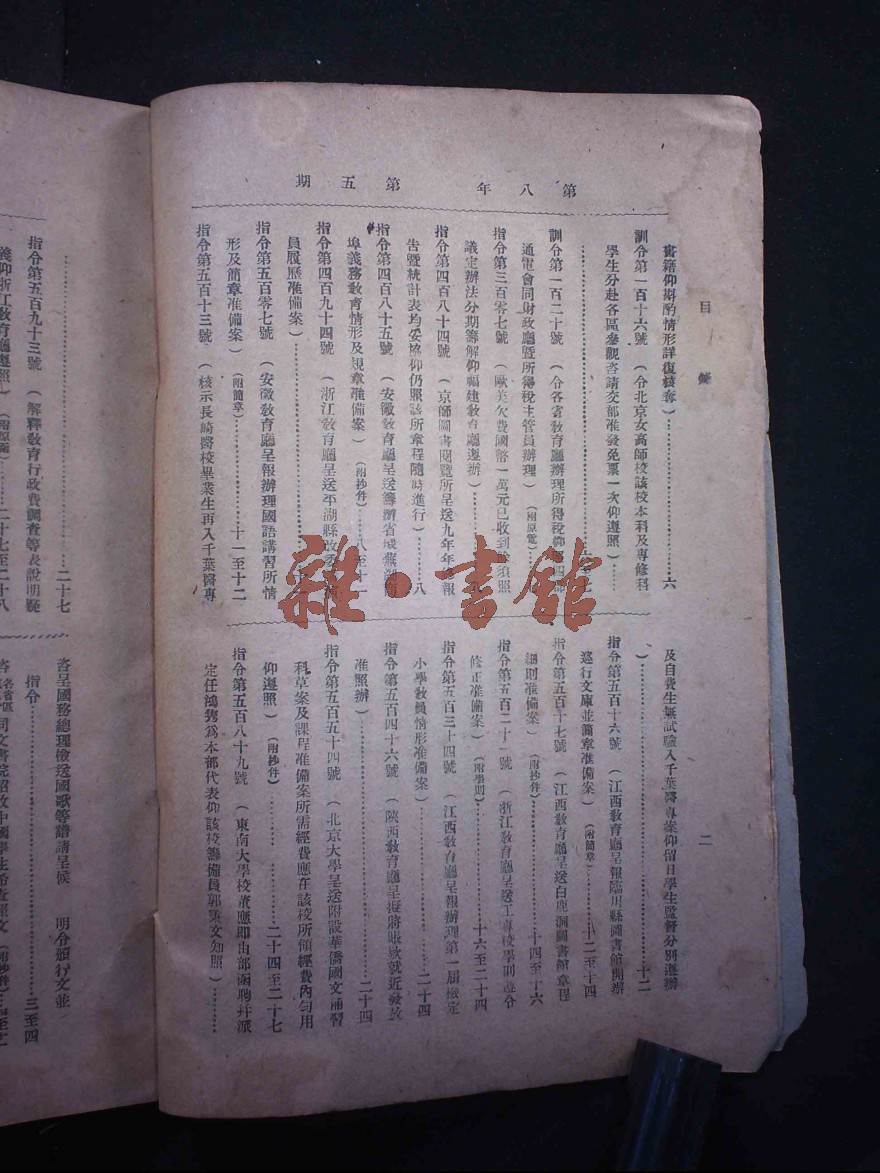 第八年 第五期
目錄
二
書籍仰斟酌情形詳復核奪）……六
訓令第一百十六號（令北京女高師校該校本科及專修科
學生分赴各區參觀咨請交部准發免票一次仰遵照）……
訓令第一百二十號（令各省教育廳辦理所得稅
通電會同財政廳暨所得稅主管員辦理）（附原電）……
指令第三百零七號（歐美欠費國幣一萬元已收到 須照
議定辦法分期籌解仰福建教育廳遵辦）……
指令第四百八十四號（京師圖書閱覽所呈送九年年 報
告暨統計表均妥協仰仍照該所章程隨時進行）……八
指令第四百八十五號（安徽教育廳呈送籌辦省城蕪湖
埠義務教育情形及規章准備案）（附抄件）……八至十
指令第四百九十四號（浙江教育廳呈送平湖縣改委
員履歷准備案）……
指令第五百零七號（安徽教育廳呈報辦理國語講習所情
形及簡章准備案）（附簡章）……十一至十二
指令第五百十三號（核示長崎醫校畢業生再入千葉醫專
及自費生無試驗入千葉醫專案仰留日學生監督分別遵辦
）……十二
指令第五百十六號（江西教育廳呈報臨川縣圖書館開辦
巡行文庫並簡章准備案）（附簡章）……十二至十四
指令第五百十七號（江西教育廳呈送白鹿洞圖書館章程
細則准備案）（附抄件）……十四至十六
指令第五百二十一號（浙江教育廳呈送工專校學則遵令
修正准備案）（附學則）……十六至二十四
指令第五百三十四號（江西教育廳呈報辦理第一屆檢定
小學教員情形准備案）……二十四
指令第五百四十六號（陝西教育廳呈擬將賬款就近發放
准照辦）……二十四
指令第五百五十四號（北京大學呈送附設華僑國文補習
科草案及課程准備案所需經費應在該校所領經費內勻用
仰遵照）（附抄件）……二十四至二十七
指令第五百八十九號（東南大學校董應即由部函聘幷派
定任鴻雋爲本部代表仰該校籌備員郭秉文知照）……
……二十七
指令第五百九十三號（解釋教育行政費調查等表說明疑
義仰浙江教育廳遵照）（附原函）……二十七至二十八
咨呈國務總理檢送國歌等譜請呈候 明令頒行文並
指令……三至四
咨各省區同文書院招收中國學生希查照文（附抄件）
雜·書館